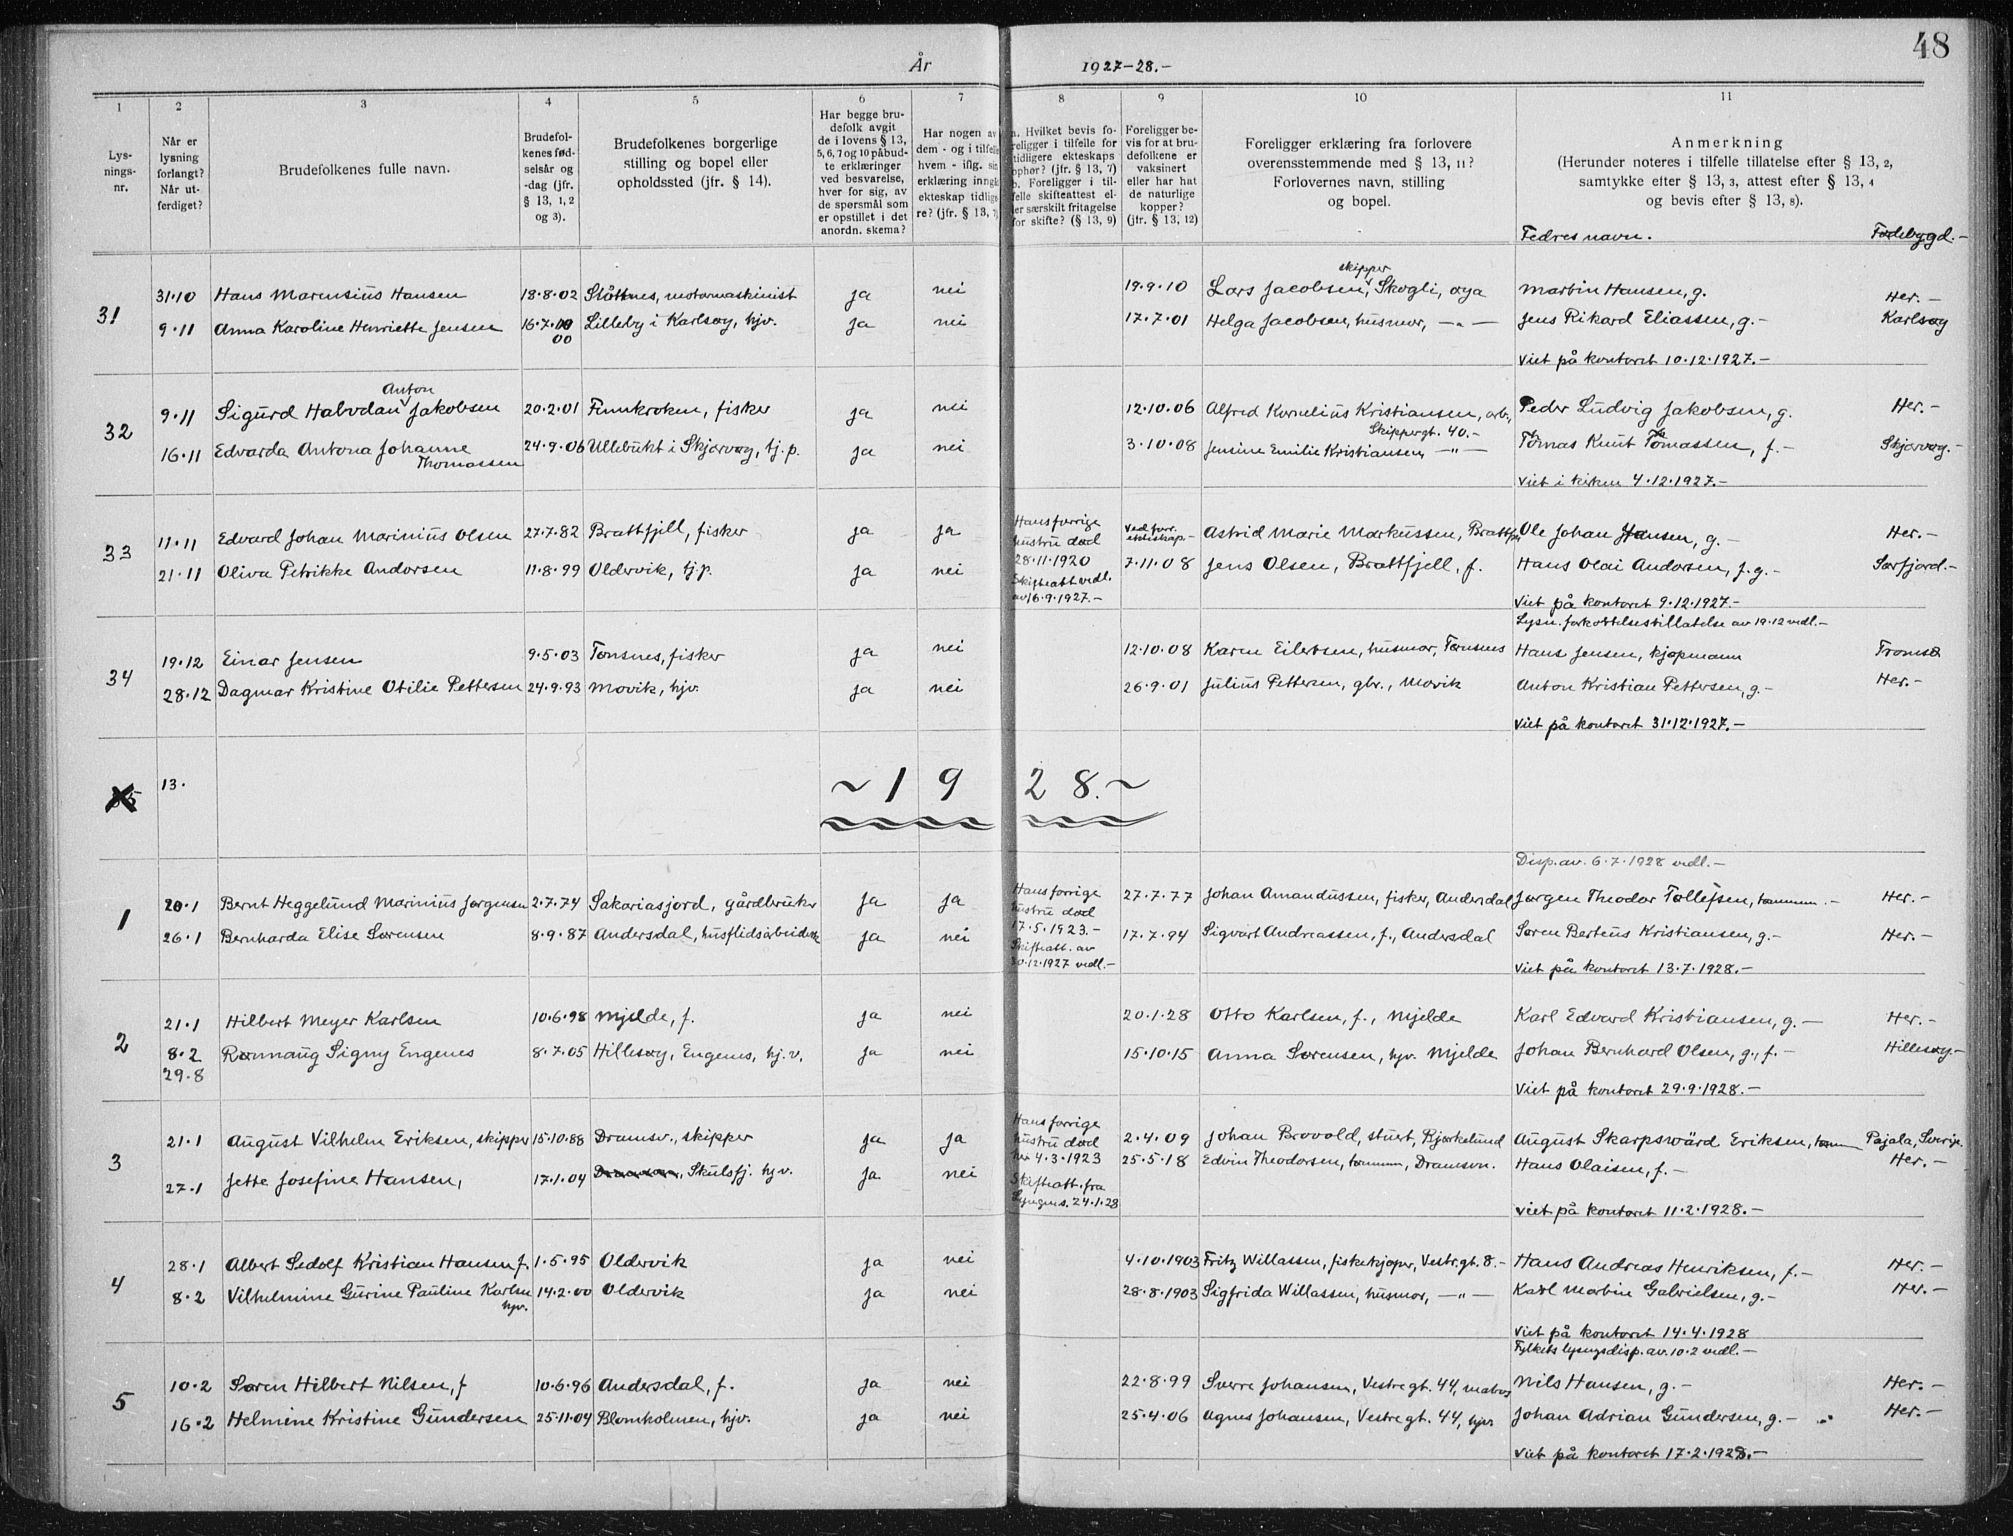 48
År 1927-28.-
1 2 3 4 5 6 7 8 9 10 11
Lysningsnr.
Når er lysning forlangt? Når utferdiget?
Brudefolkenes fulle navn.
Brudefolkenes fødselsår og -dag (jfr. § 13, 1, 2 og 3).
Brudefolkenes borgerlige stilling og bopel eller opholdssted (jfr. § 14).
Har begge brudefolk avgit de i lovens § 13, 5, 6, 7 og 10 påbudte erklæringer ved besvarelse, hver for sig, av de spørsmål som er opstillet i det anordn. skema?
Har nogen av dem - og i tilfelle hvem - iflg. sin erklæring inngå ekteskap tidligere? (jfr. § 13, 7)
a. Hvilket bevis foreligger i tilfelle for tidligere ekteskaps ophør? (jfr. § 13, 7) b. Foreligger i tilfelle skifteattest eller særskilt fritagelse for skifte? (§ 13, 9)
Foreligger bevis for at brudefolkene er vaksinert eller har hat de naturlige kopper? (jfr. § 13, 12)
Foreligger erklæring fra forlovere overensstemmende med § 13, 11? Forlovernes navn, stilling og bopel.
Anmerkning (Herunder noteres i tilfelle tillatelse efter § 13, 2, samtykke efter § 13, 3, attest efter § 13, 4 og bevis efter § 13, 8).
Fedres navn. Fødebygd.-
skipper
31 31·10 Hans Marensius Hansen 18·8·02 Slåttnes, motormaskinist ja nei 19·9·10 Lars Jacobsen, Skogli, øya Martin Hansen, g. Her.-
9·11 Anna Karoline Henriette Jensen 16·7·00 Lilleby i Karlsøy, hjv. ja nei 17·7·01 Helga Jacobsen, husmor, —„— Jens Rikard Eliassen, g.- Karlsøy
00
Viet på kontoret 10·12·1927.-
Anton
32 9·11 Sigurd Halvdan Jakobsen 20·2·01 Finnkroken, fisker ja nei 12·10·06 Alfred Kornelius Kristiansen, arb., Peder Ludvig Jakobsen, g. Her.-
Skippergt. 40.-
16·11 Edvarda Antona Johanne 24·9·06 Ullebukt i Skjærvøy, tj.p. ja nei 3·10·08 Jensine Emilie Kristiansen, —„— Tomas Knut Tomassen, f.- Skjærvøy.-
Thomassen
Viet i kirken 4·12·1927.-
33 11·11 Edvard Johan Marinius Olsen 27·7·82 Brattfjell, fisker ja ja Hans forrige hustru død 28·11·1920 Skifteatt. vedl. av 16·9·1927.- Ved forr. ekteskap- Astrid Marie Markussen, Brattfj. Ole Johan Hansen, g.- Her.-
21·11 Oliva Petrikke Andersen 11·8·99 Oldervik, tj.p. ja nei 7·11·08 Jens Olsen, Brattfjell, f. Hans Olai Andersen, f.g.- Sørfjord.-
Viet på kontoret 9·12·1927.-
Lysn. forkortelsestillatelse av 19·12 vedl.-
34 19·12 Einar Jensen 9·5·03 Tønsnes, fisker ja nei 12·10·08 Karen Eilertsen, husmor, Tønsnes Hans Jensen, kjøpmann Tromsø
28·12 Dagmar Kristine Otilie Pettersen 24·9·93 Movik, hjv. ja nei 26·9·01 Julius Pettersen, gbr., Movik Anton Kristian Pettersen, g.- Her.-
Viet på kontoret 31·12·1927.-
35 13·
~ 1 9 2 8. ~
Disp. av. 6·7·1928 vedl.-
1 20·1 Bernt Heggelund Marinius Jørgensen 2·7·74 Sakariasjord, gårdbruker ja ja Hans forrige hustru død 17·5·1923.- Skifteatt. av 30·12·1927 vedl.- 27·7·77 Johan Amandussen, fisker, Andersdal Jørgen Theodor Tollefsen, tømmerm.- Her.-
26·1 Bernharda Elise Sørensen 8·9·87 Andersdal, husflidsarbeiderske ja nei 17·7·94 Sigvart Andreassen, f., Andersdal Søren Berteus Kristiansen, g.- Her.-
Viet på kontoret 13·7·1928.-
2 21·1 Hilbert Meyer Karlsen 10·6·98 Mjelde, f. ja nei 20·1·28 Otto Karlsen, f., Mjelde Karl Edvard Kristiansen, g.- Her.-
8·2 Rønnaug Signy Engenes 8·7·05 Hillesøy, Engenes, hj.v. ja nei 15·10·15 Anna Sørensen, hjv. Mjelde Johan Bernhard Olsen, g., f.- Hillesøy.-
29·8
Viet på kontoret 29·9·1928.-
3 21·1 August Vilhelm Eriksen, skipper 15·10·88 Dramsv., skipper ja ja Hans forrige hustru død 4·3·1923 Skifteatt. fra Lyngens. 24·1·28 2·4·09 Johan Brovold, stuert, Bjørkelund August Skarpswärd Eriksen, Pajala, Sverige
27·1 Jette Josefine Hansen, 17·1·04 Dramsvn, Skulsfj. hjv. ja nei 25·5·18 Edvin Theodorsen, tømmerm., Dramsvn. Hans Olaisen, f.- Her.-
Viet på kontoret 11·2·1928.-
4 28·1 Albert Sedolf Kristian Hansen f. 1·5·95 Oldervik ja nei 4·10·1903 Fritz Willassen, fiskekjøper, Vestr.gt. 8.- Hans Andreas Henriksen, f.- Her.-
8·2 Vilhelmine Gurine Pauline Karlsen 14·2·00 Oldervik ja nei 28·8·1903 Sigfrida Willassen, husmor, —„— Karl Martin Gabrielsen, g.- Her.-
hjv.
Viet på kontoret 14·4·1928
Fylkets lysngsdisp. av. 10·2 vedl.-
5 10·2 Søren Hilbert Nilsen, f 10·6·96 Andersdal, f. ja nei 22·8·99 Sverre Johansen, Vestregt. 44, matros Nils Hansen, g.- Her.-
16·2 Helmine Kristine Gundersen 25·11·04 Blomholmen, hjv. ja nei 25·4·06 Agnes Johansen, Vestregt. 44, hjv. Johan Adrian Gundersen, g.- Her.-
Viet på kontoret 17·2·1928.-